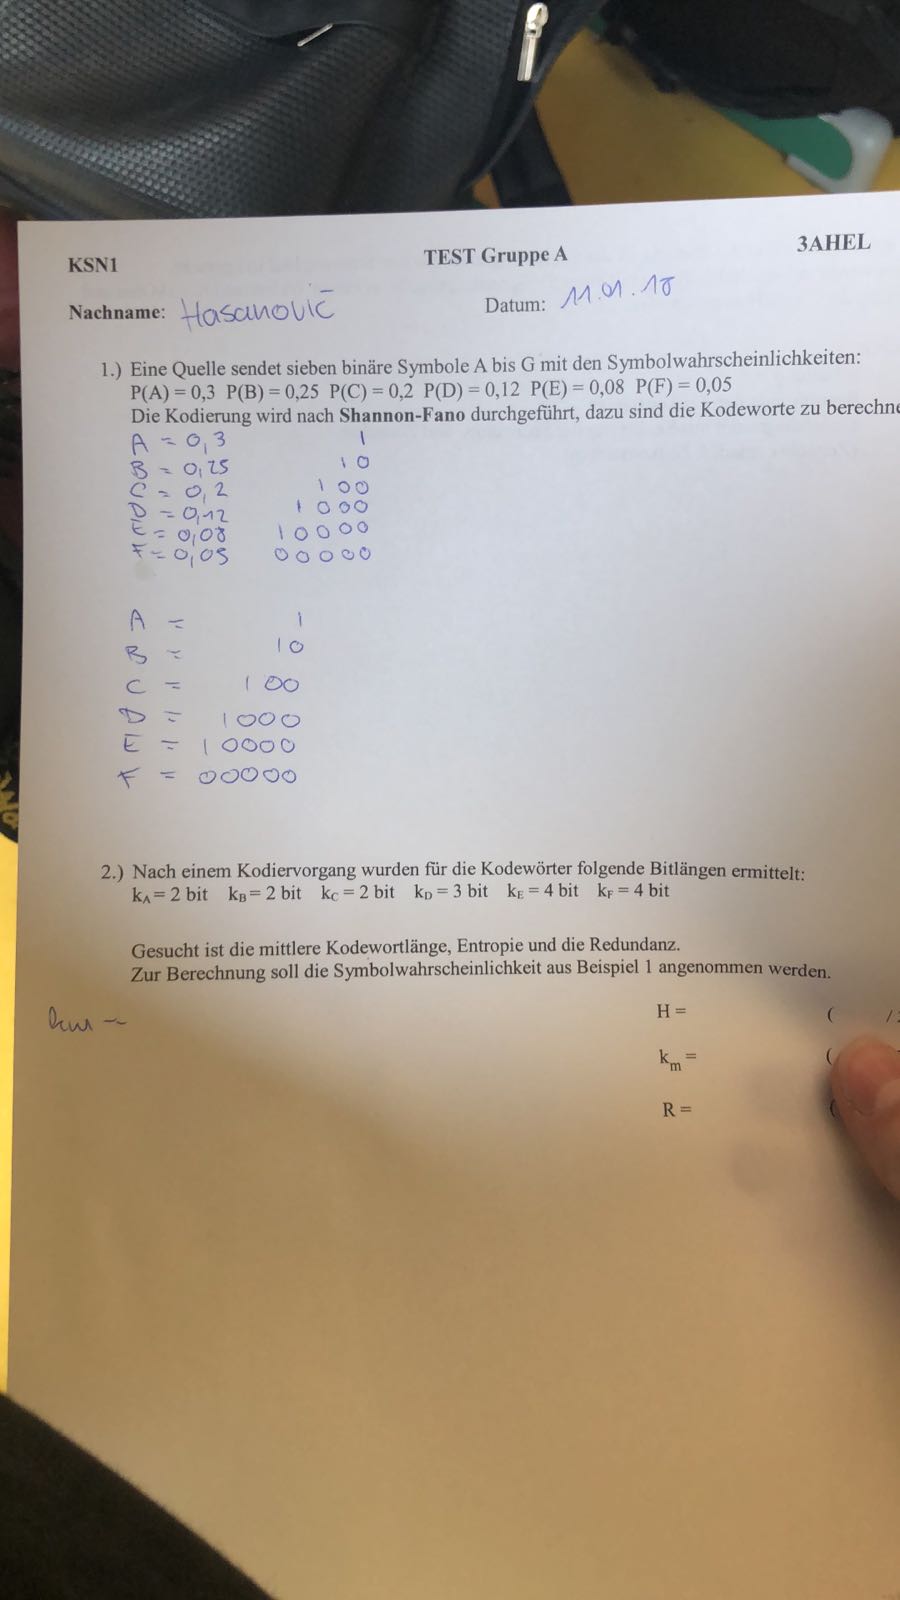 KSN1 TEST Gruppe A 3AHEL
Nachname: Hasanović Datum: 11.01.18
1.) Eine Quelle sendet sieben binäre Symbole A bis G mit den Symbolwahrscheinlichkeiten:
P(A) = 0,3 P(B) = 0,25 P(C) = 0,2 P(D) = 0,12 P(E) = 0,08 P(F) = 0,05
Die Kodierung wird nach Shannon-Fano durchgeführt, dazu sind die Kodeworte zu berechne
A = 0,3 1
B = 0,25 10
C = 0,2 100
D = 0,12 1000
E = 0,08 10000
F = 0,05 00000
A = 1
B = 10
C = 100
D = 1000
E = 10000
F = 00000
2.) Nach einem Kodiervorgang wurden für die Kodewörter folgende Bitlängen ermittelt:
kA = 2 bit kB = 2 bit kC = 2 bit kD = 3 bit kE = 4 bit kF = 4 bit
Gesucht ist die mittlere Kodewortlänge, Entropie und die Redundanz.
Zur Berechnung soll die Symbolwahrscheinlichkeit aus Beispiel 1 angenommen werden.
H = ( /
km =
(
km = (
R = (